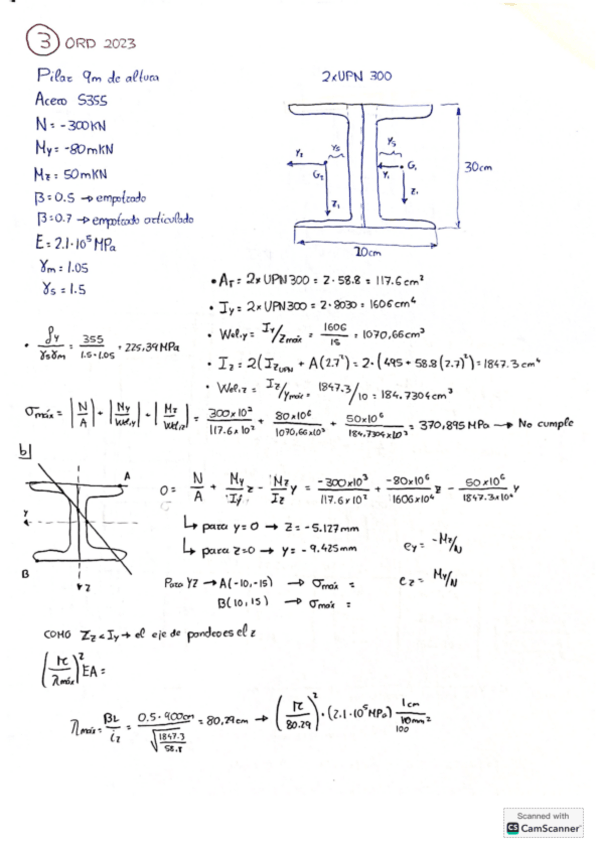 ③ ORD 2023
Pilar 9m de altura
2xUPN 300
Acero S355
N = -300KN
My = -80mKN
Mz = 50mKN
β = 0.5 → empotrado
β = 0.7 → empotrado articulado
E = 2.1·10⁵ MPa
γm = 1.05
γs = 1.5
Y₂
Ys
G₂
Z₁
Ys
G₁
Y₁
Z₁
30cm
20cm
• A_T = 2x UPN 300 = 2·58.8 = 117.6 cm²
• Iy = 2xUPN300 = 2·8030 = 1606 cm⁴
• Wel,y = Iy/Zmáx = 1606/15 = 1070,66cm³
• fy/γsγm = 355/1.5·1.05 = 225,39 MPa
• Iz = 2(Iz_UPN + A(2.7²)) = 2·(495 + 58.8(2.7)²) = 1847.3 cm⁴
• Wel,z = Iz/ymáx = 1847.3/10 = 184.7304cm³
σmáx = |N/A| + |My/Wel,y| + |Mz/Wel,z| = 300x10²/117.6x10² + 80x10⁶/1070,66x10³ + 50x10⁶/184,7304x10³ = 370,895 MPa → No cumple
b)
A
Y
B
Z
0 = N/A + My/Iy z - Mz/Iz y = -300x10³/117.6x10² + -80x10⁶/1606x10⁴ z - 50x10⁶/1847.3x10⁴ y
σ
↳ para y=0 → Z = -5.127mm
↳ para z=0 → y = -9.425mm
ey = -Mz/N
Para YZ → A(-10,-15) → σmáx =
ez = My/N
B(10,15) → σmáx =
COMO Iz < Iy → el eje de pandeo es el z
(π/λmáx)² EA =
λmáx = βL/iz = 0.5·900cm/√(1847.3/58.8) = 80,29cm → (π/80.29)²·(2.1·10⁵ MPa) 1cm/10mm²
100
Scanned with
CS CamScanner